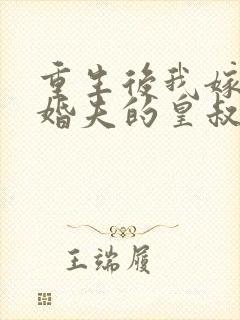 重生后我嫁
婚夫的皇叔
王端履